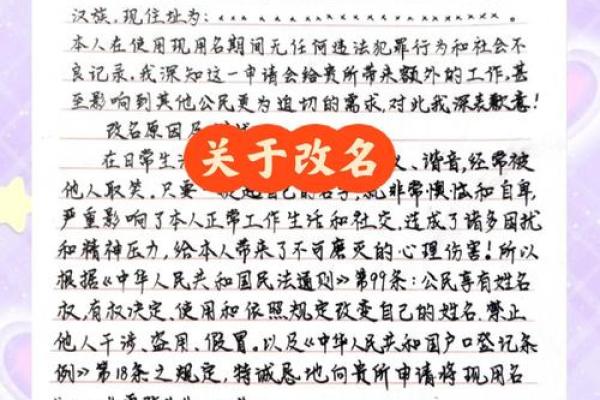 汉族，现住址为：xxxxxxxxxxxxxxx。
本人在使用现用名期间无任何违法犯罪行为和社会不
良记录。我深知这一申请会给贵所带来额外的工作，甚
至影响到其他公民更为迫切的需求，对此我深表歉意！
改名原因及
关于改名
在日常生 义、谐音，经常被
他人取笑。只要一 自己的名字，就非常懊恼和自卑，
严重影响了本人正常工作生活和社交，造成了诸多困扰
和精神压力，给本人带来了不可磨灭的心理伤害！所以
根据《中华人民共和国民法通则》第99条：公民享有姓名
权，有权决定、使用和依照规定改变自己的姓名，禁止
他人干涉、盗用、假冒。以及《中华人民共和国户口登记条
例》第18条之规定，特诚恳地向贵所申请将现用名